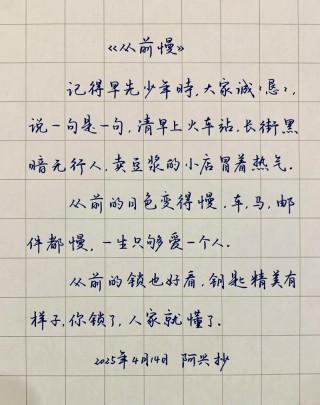 《从前慢》
记得早先少年时,大家诚〻恳〻,
说一句是一句,清早上火车站,长街黑
暗无行人,卖豆浆的小店冒着热气.
从前的日色变得慢,车,马,邮
件都慢,一生只够爱一个人.
从前的锁也好看,钥匙精美有
样子,你锁了,人家就懂了.
2025年4月14日 阿兴抄